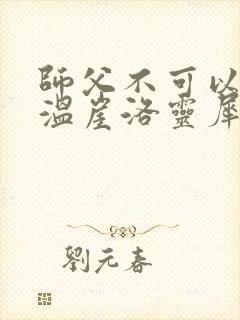 師父不可以
溫崖洛靈犀
劉元春